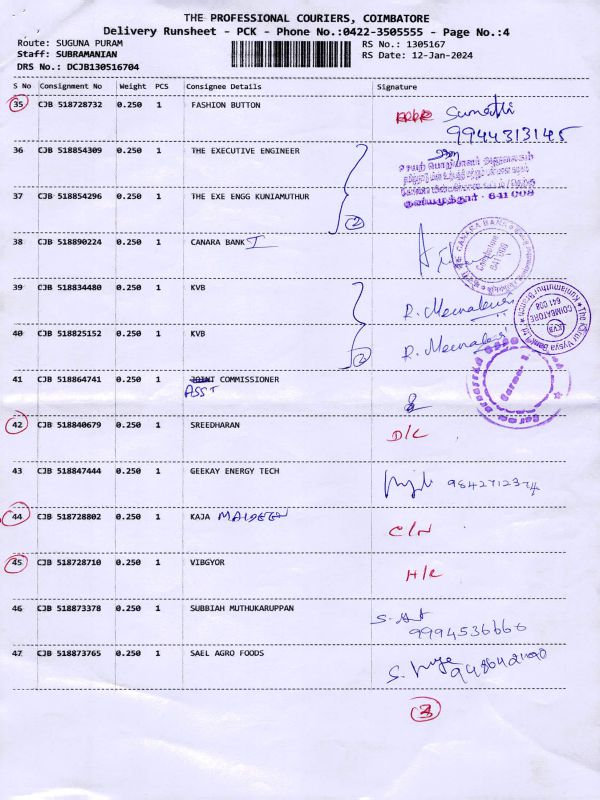 THE PROFESSIONAL COURIERS, COIMBATORE
Delivery Runsheet - PCK - Phone No.:0422-3505555 - Page No.:4
Route: SUGUNA PURAM RS No.: 1305167
Staff: SUBRAMANIAN RS Date: 12-Jan-2024
DRS No.: DCJB130516704
S No Consignment No Weight PCS Consignee Details Signature
35 CJB 518728732 0.250 1 FASHION BUTTON Sumathi
9944313145
36 CJB 518854309 0.250 1 THE EXECUTIVE ENGINEER
குனியமுத்தூர் - 641 008
37 CJB 518854296 0.250 1 THE EXE ENGG KUNIAMUTHUR
2
38 CJB 518890224 0.250 1 CANARA BANK I
CANARA BANK
Coimbatore
641 008
39 CJB 518834480 0.250 1 KVB R. Meenakshi
The Karur Vysya Bank Ltd.
Kuniamuthur Branch
COIMBATORE
641 008
KVB
40 CJB 518825152 0.250 1 KVB R. Meenakshi
2
41 CJB 518864741 0.250 1 JOINT COMMISSIONER
ASST
42 CJB 518840679 0.250 1 SREEDHARAN D/L
43 CJB 518847444 0.250 1 GEEKAY ENERGY TECH 9842712374
44 CJB 518728802 0.250 1 KAJA MAIDEEN C/N
45 CJB 518728710 0.250 1 VIBGYOR
46 CJB 518873378 0.250 1 SUBBIAH MUTHUKARUPPAN
9994536666
47 CJB 518873765 0.250 1 SAEL AGRO FOODS
3